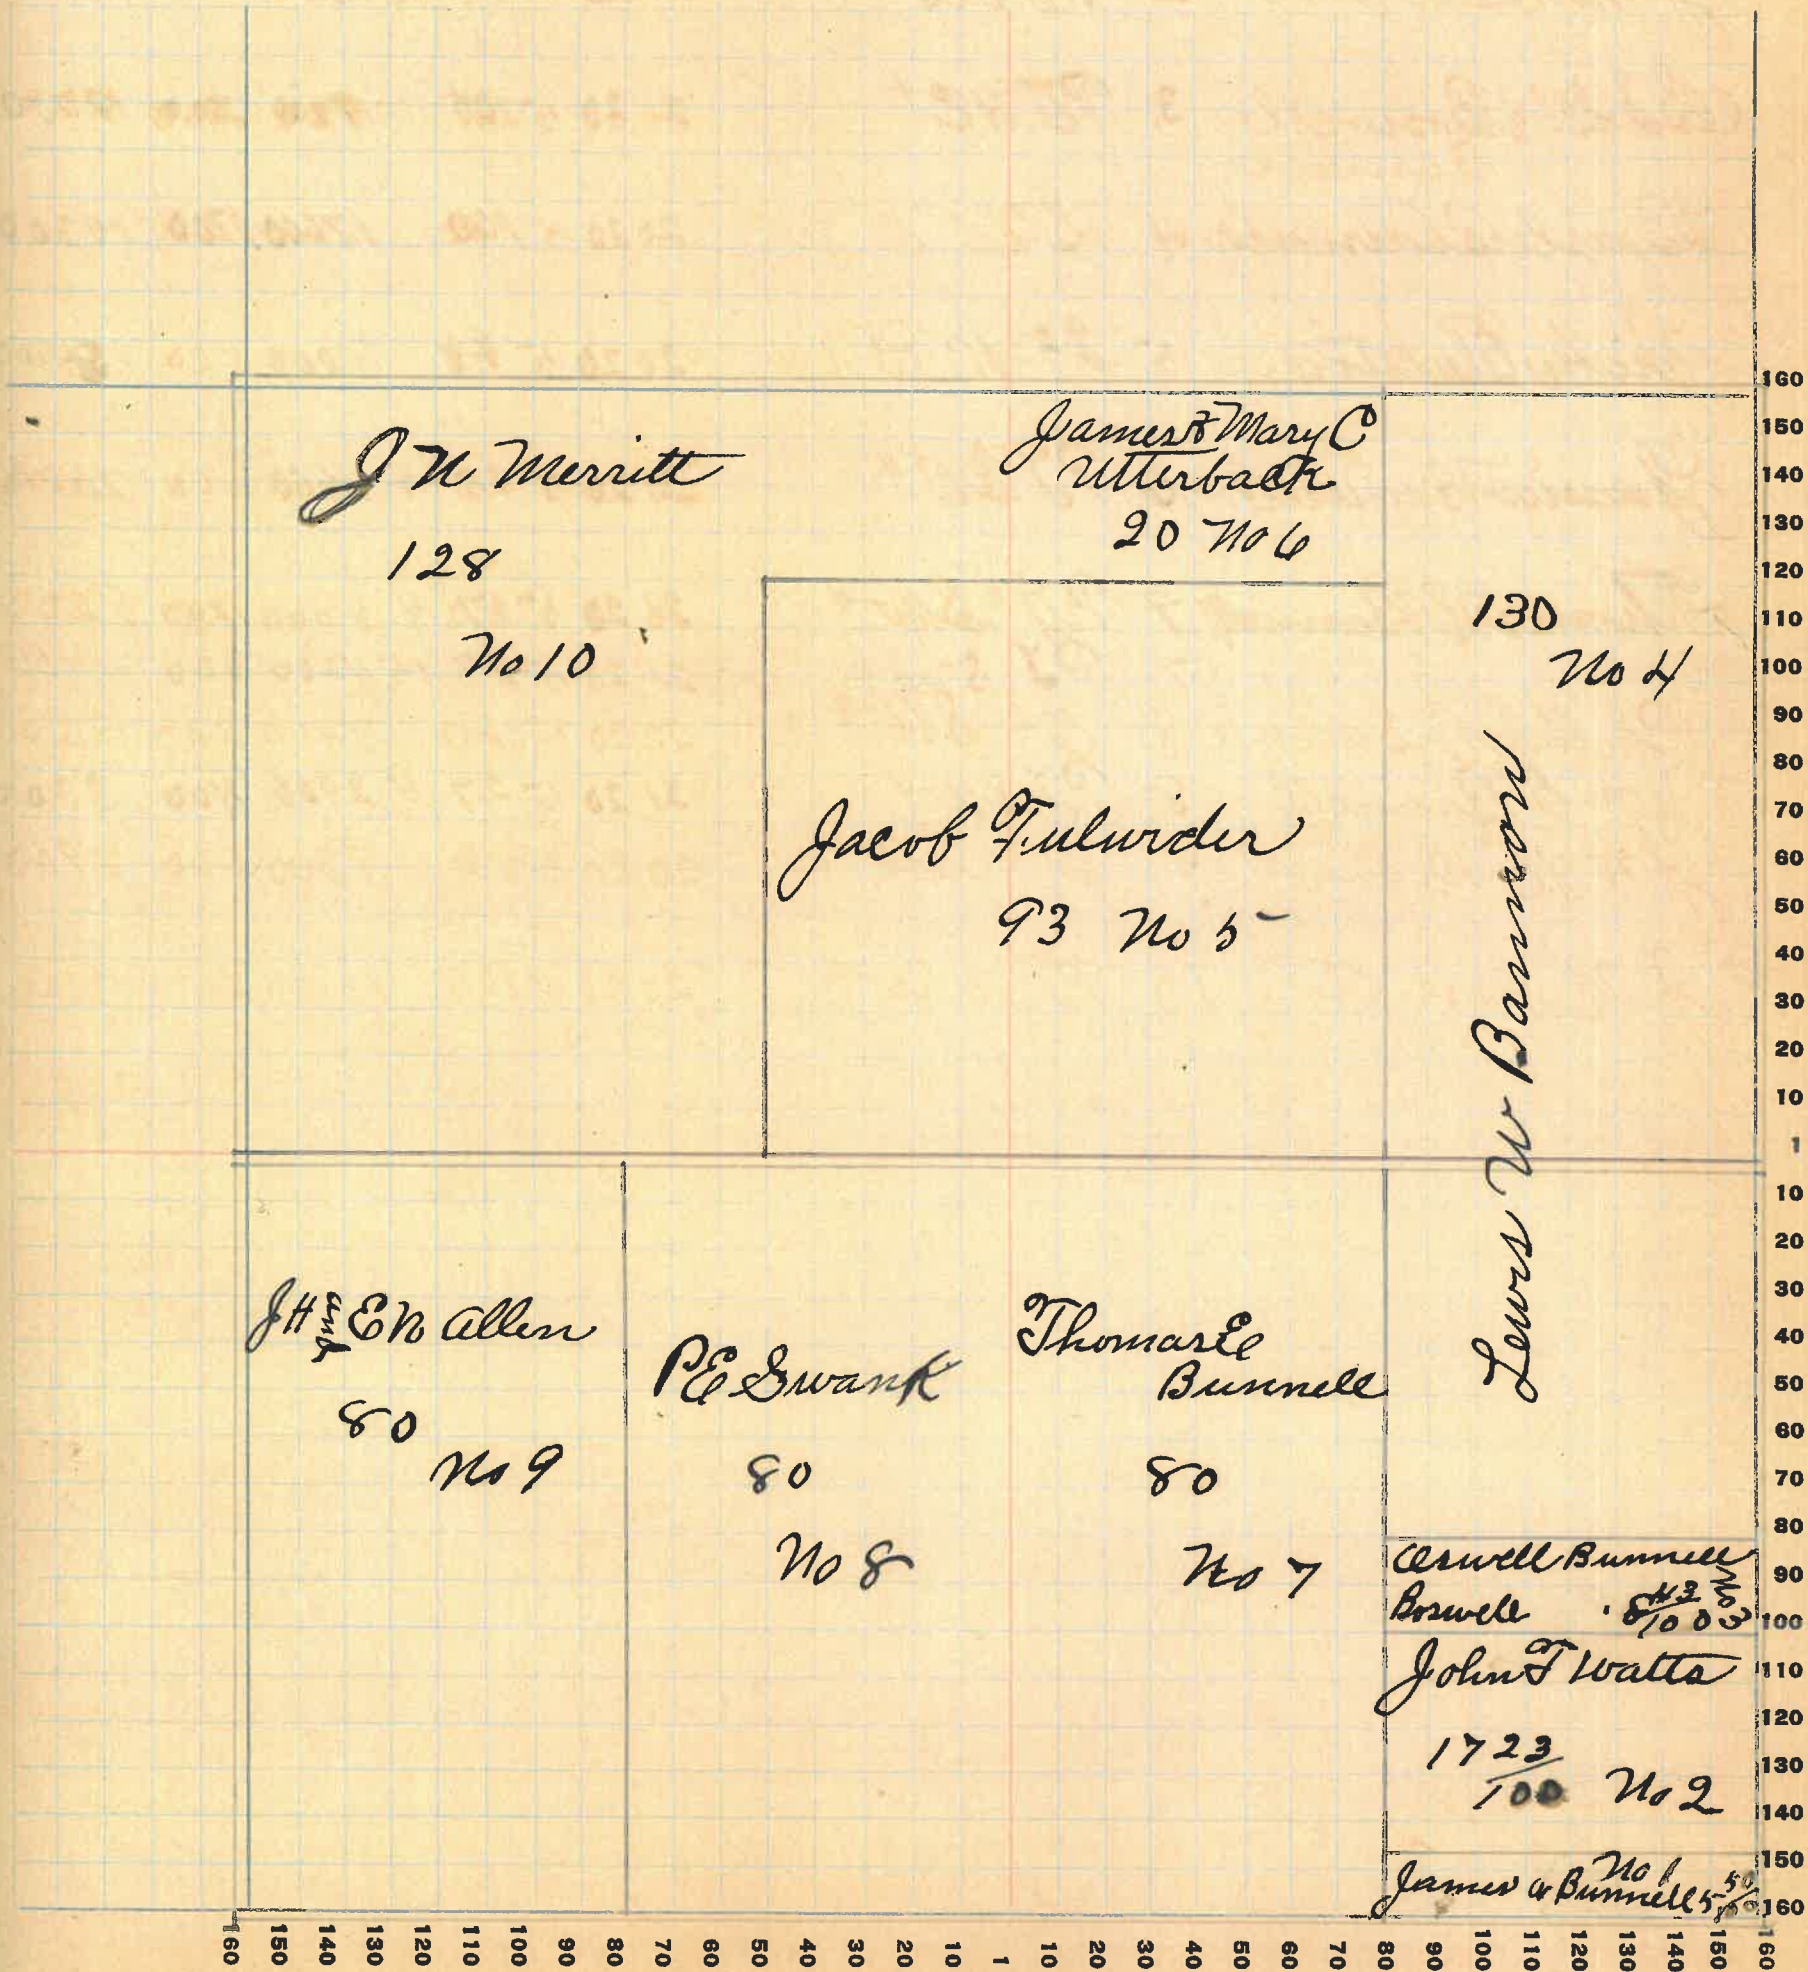 J N Merritt
128
No 10
James & Mary C
Utterback
20 No 6
130
No 4
Lewis W Bannon
Jacob Fulwider
93 No 5
J H and E N Allen
80
No 9
P E Swank
80
No 8
Thomas E
Bunnell
80
No 7
Bunnell
Boswell 8 43/100 No 3
John F Watts
17 23/100 No 2
No 1
James A Bunnell 5
160
150
140
130
120
110
100
90
80
70
60
50
40
30
20
10
1
10
20
30
40
50
60
70
80
90
100
110
120
130
140
150
160
160 150 140 130 120 110 100 90 80 70 60 50 40 30 20 10 1 10 20 30 40 50 60 70 80 90 100 110 120 130 140 150 160